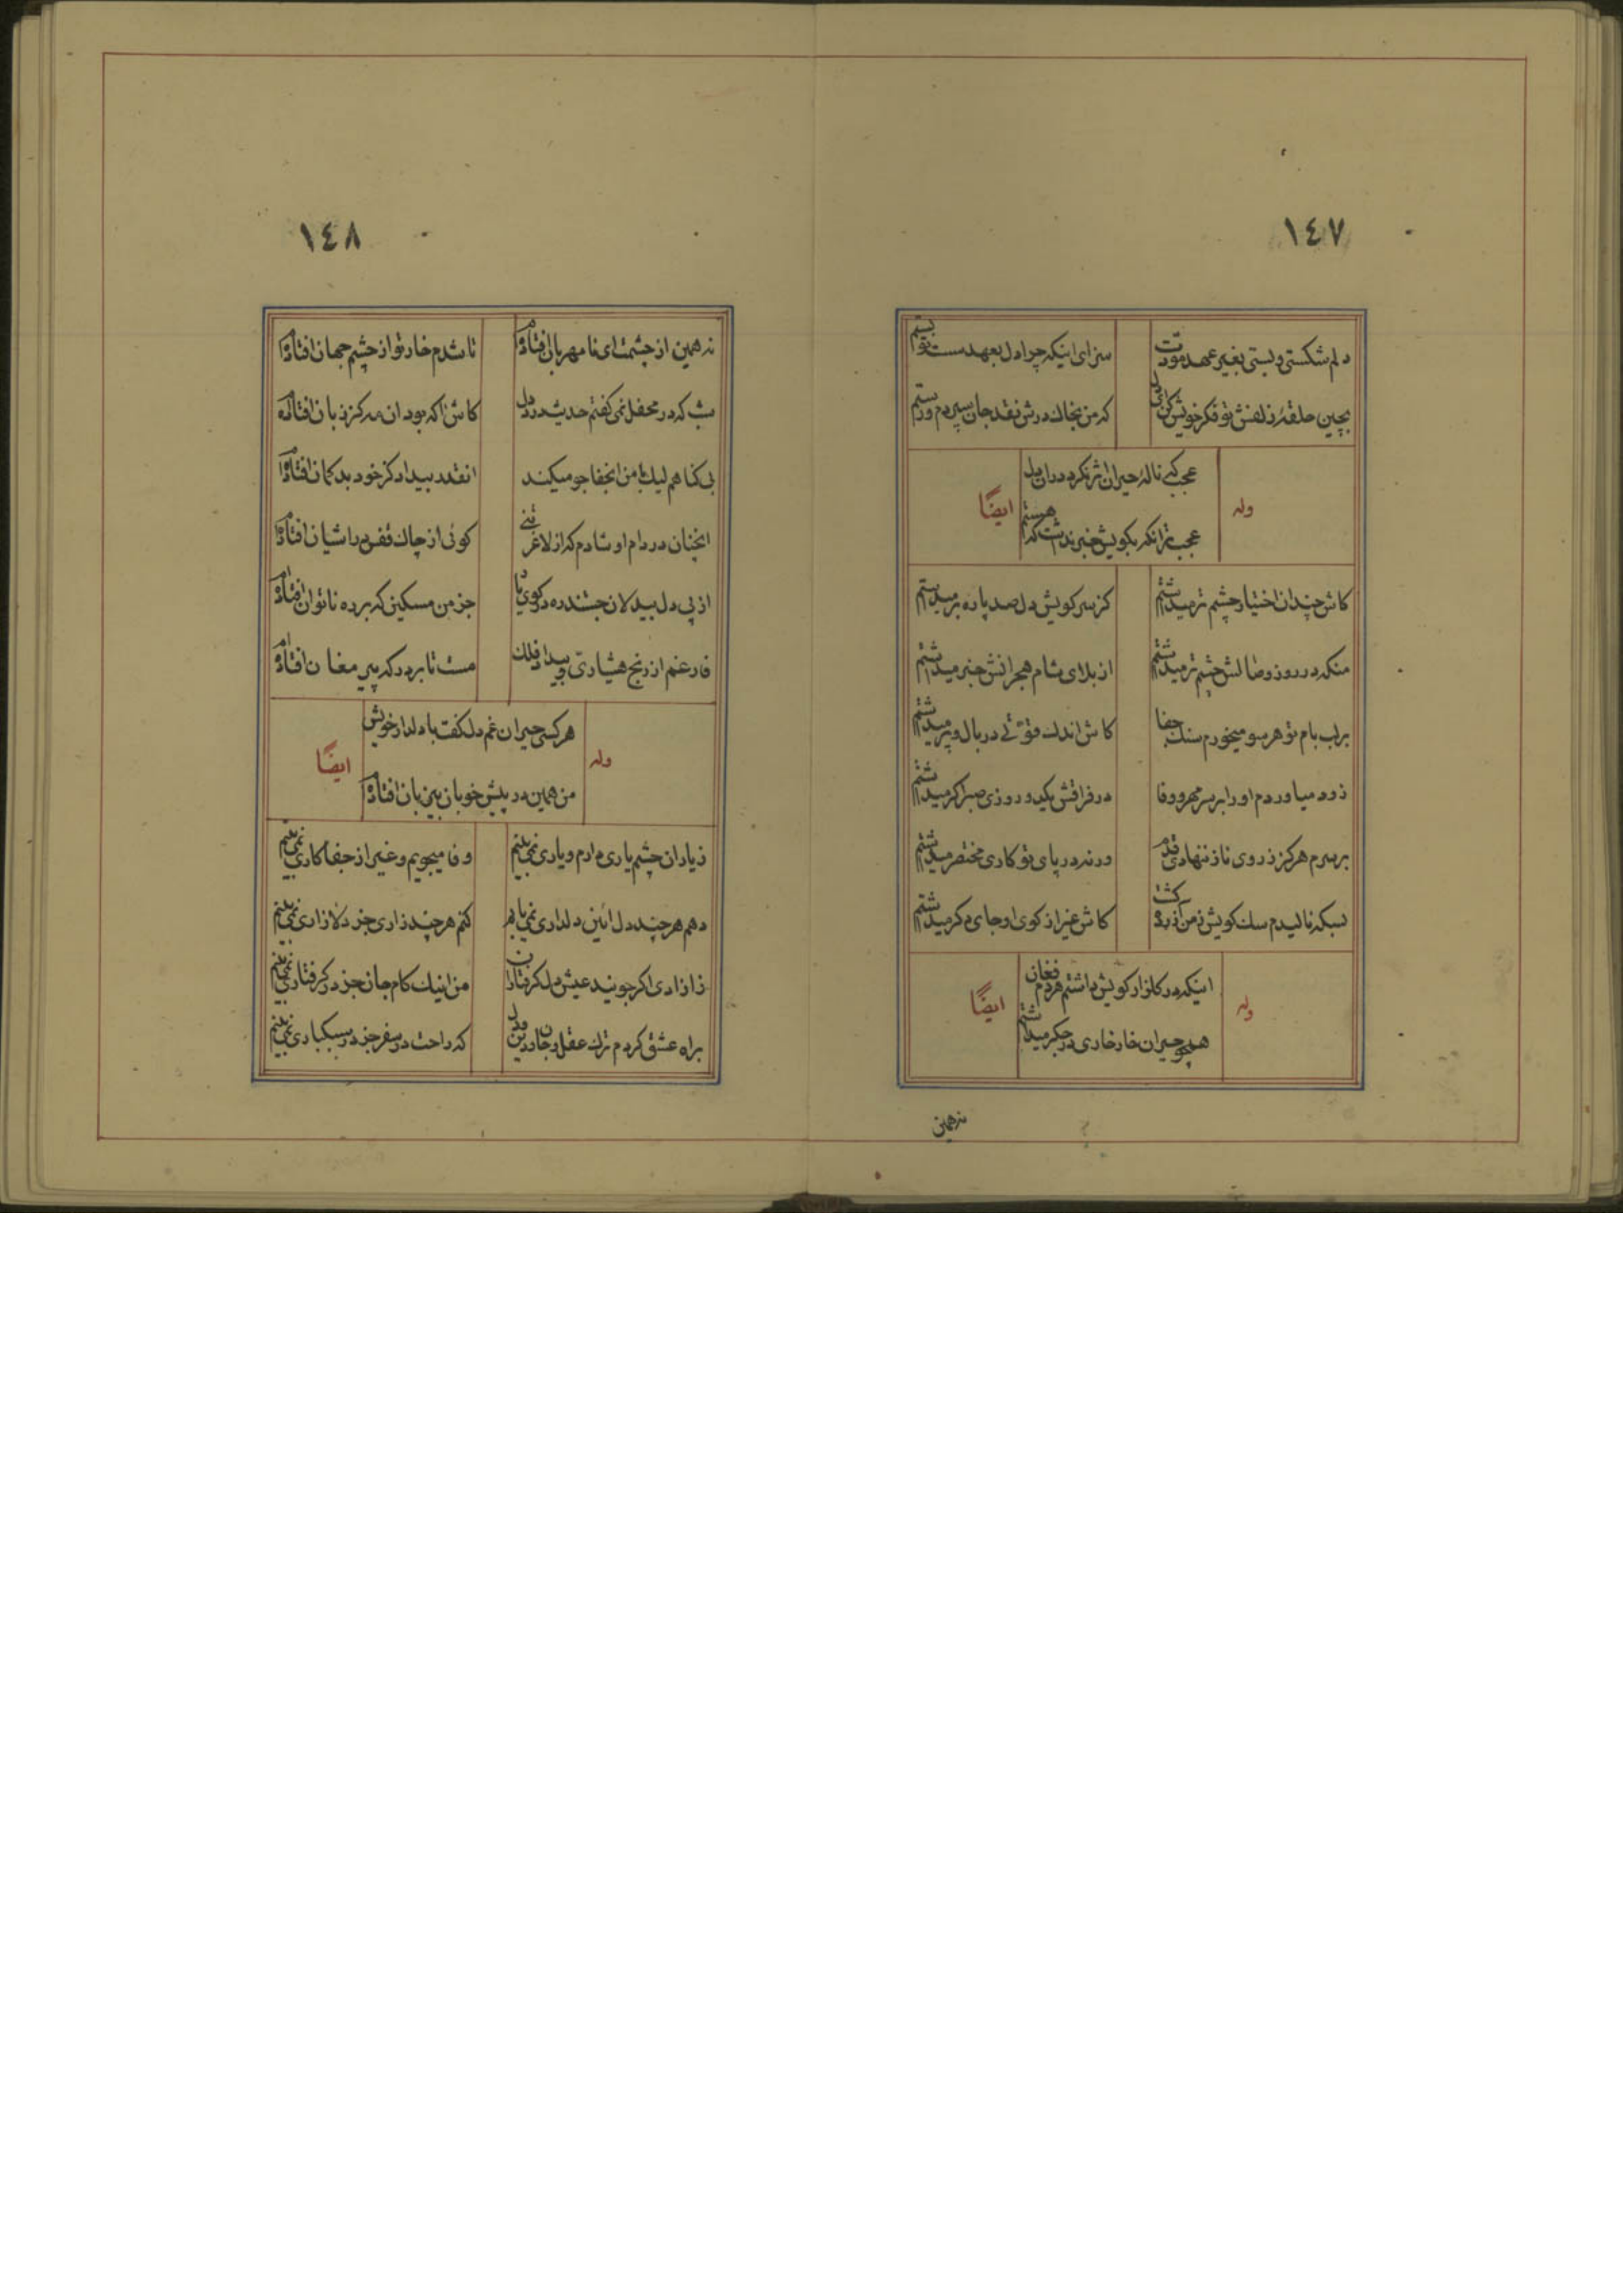 ١٤٧
دلم شکستی و بستی بغیر عهد مودت
سزای اینکه چرا دل بعهد سست تو بستم
بچین حلقهٔ زلفش تو فکر خویش کن ای دل
که من بخاك درش نقد جان سپردم و رستم
وله
عجب که نالهٔ حیران اثر نکرد در آن دل
عجب تر آنکه بکویش خبر نداشت که هستم
ایضًا
کاش چندان اختیار چشم تر میداشتم
کز سر کویش دل صد پاره بر میداشتم
منکه در روز وصالش چشم تر میداشتم
از بلای شام هجرانش خبر میداشتم
بر لب بام تو هر سو میخورم سنك جفا
کاش اندك قوتی در بال و پر میداشتم
زود میاوردم او را بر سر مهر و وفا
در فراقش یکدو روزی صبر اگر میداشتم
بر سرم هرگز ز روی ناز ننهادی قدم
ورنه در پای تو کاری مختصر میداشتم
بسکه نالیدم سك کویش ز من آزرده کشت
کاش غیر از کوی او جای دکر میداشتم
وله
اینکه در کلزار کویش داشتم هردم فغان
همچو حیران خار خاری در جکر میداشتم
ایضًا
نه همین
١٤٨
نه همین از چشمت ای نامهربان افتاده‌ام
تا شدم خار تو از چشم جهان افتاده‌ام
شب که در محفل نمی کفتم حدیث درد دل
بی کناهم لیك با من آن جفا جو میکند
انقدر بیداد کز خود بد کمان افتاده‌ام
انچنان در دام او شادم که از لاغر تنی
کوئی از چاك قفس در اشیان افتاده‌ام
از پی دل بیدلان جستند ره در کوی یار
جز من مسکین که برده ناتوان افتاده‌ام
فارغم از رنج هشیاری و بیداد فلك
مست تا بر درکه پیر مغان افتاده‌ام
وله
هر کسی حیران غم دل کفت با دلدار خویش
من همین در پیش خوبان بیزبان افتاده‌ام
ایضًا
ز یاران چشم یاری دارم و یاری نمی بینم
وفا میجویم و غیر از جفا کاری نمی بینم
دهم هر چند دل آئین دلداری نمی یابم
کنم هر چند زاری جز دلازاری نمی بینم
ز ازادی اکر جویند عیش دل کرفتاران
من اینك کام جان جز در کرفتاری نمی بینم
براه عشق کردم ترك عقل و جان و دین و دل
که راحت در سفر جز در سبکباری نمی بینم